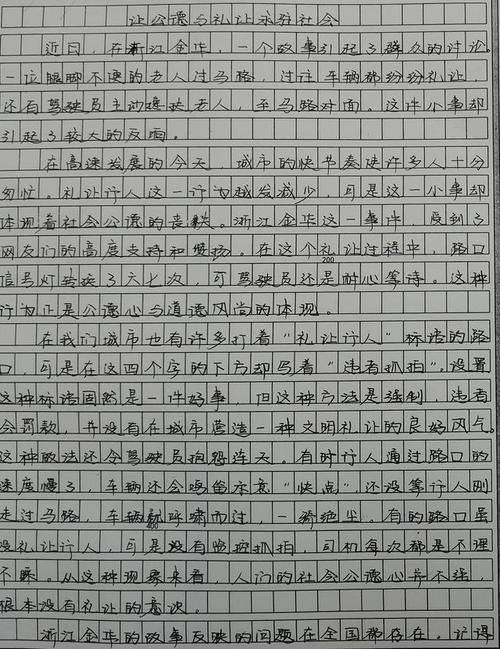 让公德与礼让永驻社会
近日，在浙江金华，一个故事引起了群众的讨论。
一位腿脚不便的老人过马路，过往车辆都纷纷礼让，
还有驾驶员主动搀扶老人，至马路对面。这件小事却
引起了较大的反响。
在高速发展的今天，城市的快节奏使许多人十分
匆忙。礼让行人这一行为越发减少，可是这一小事却
体现着社会公德的丧失。浙江金华这一事件，受到了
网友们的高度支持和赞扬。在这个礼让过程中，路口
200
信号灯转换了六七次，可驾驶员还是耐心等待。这种
行为正是公德心与道德风尚的体现。
在我们城市也有许多打着“礼让行人”标语的路
口，可是在这四个字的下方却写着“违者抓拍”。设置
这种标语固然是一件好事，但这种方法是强制，违者
会罚款，并没有在城市营造一种文明礼让的良好风气。
这种做法还令驾驶员抱怨连天。有时行人通过路口的
速度慢了，车辆还会鸣笛示意“快点”，还没等行人刚
走过马路，车辆就呼啸而过，一骑绝尘。有的路口虽
没礼让行人，可是没有监控抓拍，司机每次都是不理
不睬。从这种现象来看，人们的社会公德心并不强，
根本没有礼让的意识。
浙江金华的故事反映的问题在全国都存在。记得